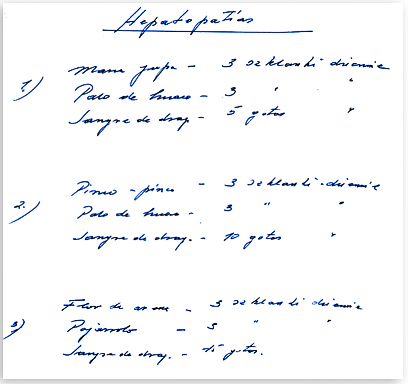 Hepatopatías
1.) Manayupa - 3 szklanki dziennie
Palo de hueso - 3 " "
Sangre de drag. - 5 gotas "
2.) Pinco-pinco - 3 szklanki dziennie
Palo de hueso - 3 " "
Sangre de drag. - 10 gotas "
3) Flor de arena - 3 szklanki dziennie
- 3 " "
Sangre de drag. - 15 gotas.